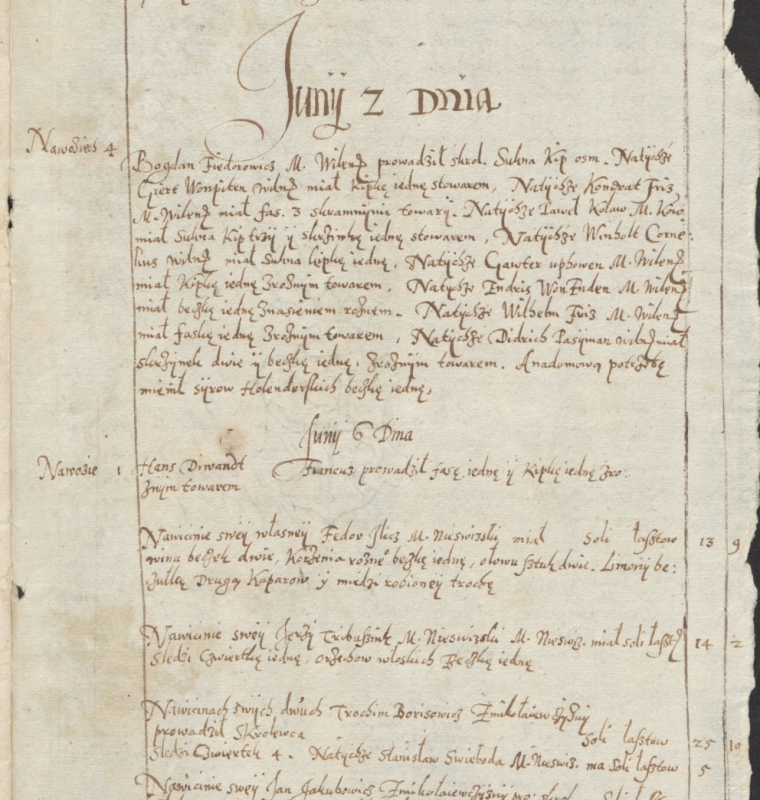 Junij 2 Dnia
Nawoziech 4
Bogdan Fiedorowicz M. Wileńs prowadził skrol. Sukna Kip osm. Natychże
Giert Wonpiten Wilens miał kipkę iednę stowarem, Natychże Kondrat Friz
M. Wilens miał fas. 3 skramnymi towary. Natychże Paweł Kolaw M. Kow
miał Sukna Kip trzy y skrzinkę iednę stowarem, Natychże Winholt Corne:
lius Wilens miał Sukna kipkę iednę, Natychże Gawter uphowen M. Wilens
miał Kipkę iednę zrożnym towarem, Natychże Endris WonEnden M. Wilens
miał beczkę iednę znasieniem rożnem. Natychże Wilhelm Friz M. Wilens
miał faskę iednę zrożnym towarem, Natychże Didrich Pasyman Wilens miał
skrzynek dwie y beczkę iednę, zrożnym towarem. Anadomową potrzebę
miał syrow Holenderskich beczkę iednę,
Junij 6 Dnia
Nawozie 1 Hans Dirwandt Francuz prowadził fasę iednę y Kipkę iednę zro:
żnym towarem
Nawicinie swey własney Fedor Ilicz M. Nieswizski miał soli łasztow 13 9
wina beczek dwie, Korzenia rożne° beczkę iednę, ołowu sztuk dwie. Limonij be:
czułkę Drugą Kaparow y miedzi robioney trochę
Nawicinie swey Jerzy Tribuszink M. Nieswizski M. Nieswiz. miał soli łaszt 14 2
Sledzi Czwiertkę iednę, orzechow włoskich Beczkę iednę
Nawicinach swych dwuch Trochim Borisowicz Zmikołaiewszczyzny
prowadził skrolewca soli łasztow 25 10
Sledzi Czwiertek 4. Natychże Stanisław Swieboda M. Nieswiz. ma soli łasztow 5
Nawicinie swey Jan Jakubowicz Zmikołaiewszczyzny pro: skrol. soli